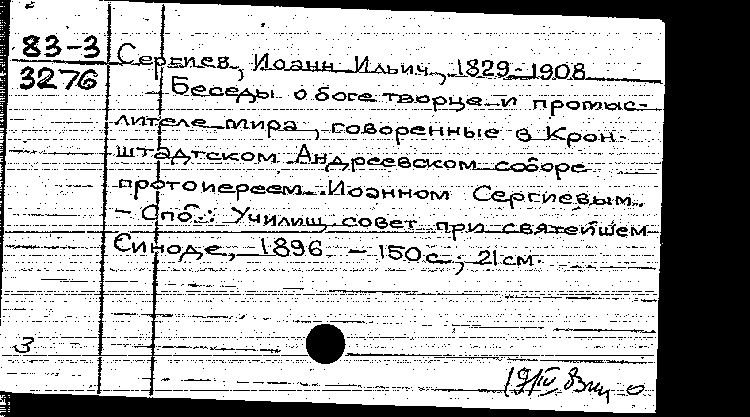 83-3
3276
Сергиев, Иоанн Ильич, 1829-1908
Беседы о боге творце и промыс-
лителе мира, говоренные в Крон-
штадтском Андреевском соборе
протоиереем Иоанном Сергиевым.
- Спб.: Училищ. совет при святейшем
Синоде, 1896 - 150 с.; 21 см.
3
19/IV 83